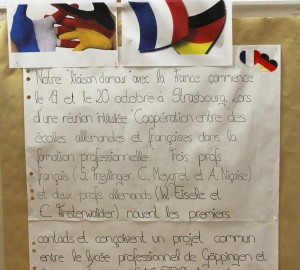 Notre liaison d'amour avec la France commence
le 19 et le 20 octobre à Strasbourg, lors
d'une réunion intitulée "Coopération entre des
écoles allemandes et françaises dans la
formation professionnelle". Trois profs
français (S. Freylinger, C. Meyaret et A. Niçoise)
et deux profs allemands (W. Eisele et
C. Finsterwalder) nouent les premiers
contacts et conçoivent un projet commun
entre le lycée professionnel de Göppingen et